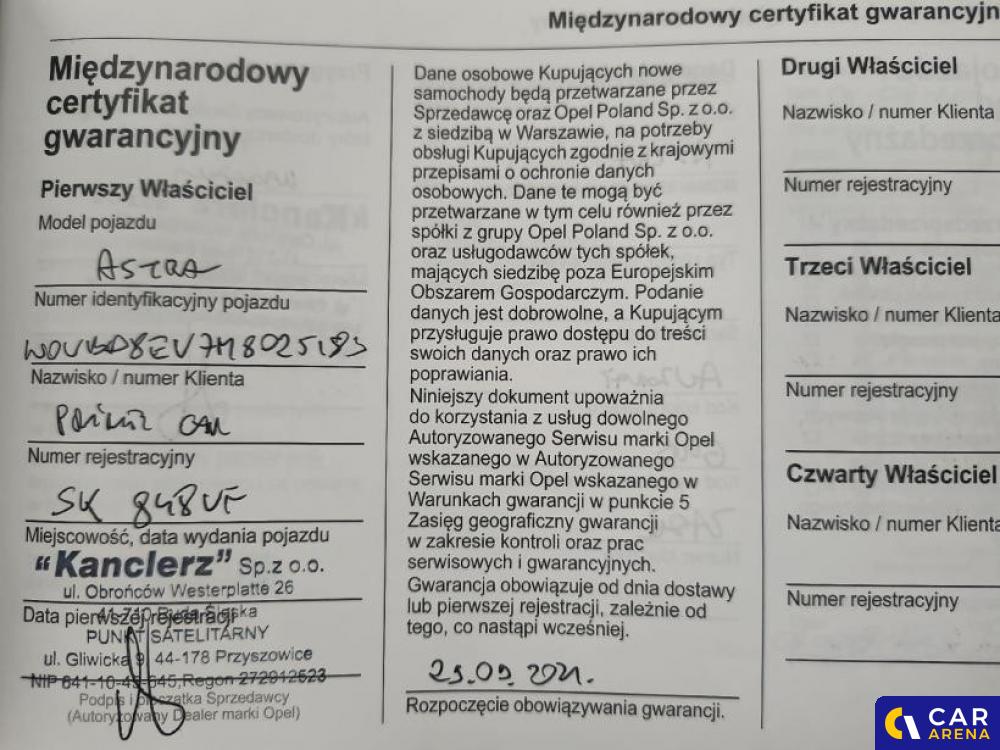 Międzynarodowy certyfikat gwarancyjn
Międzynarodowy
certyfikat
gwarancyjny
Pierwszy Właściciel
Model pojazdu
ASTRA
Numer identyfikacyjny pojazdu
Nazwisko / numer Klienta
CAR
Numer rejestracyjny
SK 848VF
Miejscowość, data wydania pojazdu
"Kanclerz" Sp.z o.o.
ul. Obrońców Westerplatte 26
41-710 Ruda Śląska
Data pierwszej rejestracji
PUNKT SATELITARNY
ul. Gliwicka 9, 44-178 Przyszowice
NIP 641-10-45-645, Regon 272012523
Podpis i pieczątka Sprzedawcy
(Autoryzowany Dealer marki Opel)
Dane osobowe Kupujących nowe
samochody będą przetwarzane przez
Sprzedawcę oraz Opel Poland Sp. z o.o.
z siedzibą w Warszawie, na potrzeby
obsługi Kupujących zgodnie z krajowymi
przepisami o ochronie danych
osobowych. Dane te mogą być
przetwarzane w tym celu również przez
spółki z grupy Opel Poland Sp. z o.o.
oraz usługodawców tych spółek,
mających siedzibę poza Europejskim
Obszarem Gospodarczym. Podanie
danych jest dobrowolne, a Kupującym
przysługuje prawo dostępu do treści
swoich danych oraz prawo ich
poprawiania.
Niniejszy dokument upoważnia
do korzystania z usług dowolnego
Autoryzowanego Serwisu marki Opel
wskazanego w Autoryzowanego
Serwisu marki Opel wskazanego w
Warunkach gwarancji w punkcie 5
Zasięg geograficzny gwarancji
w zakresie kontroli oraz prac
serwisowych i gwarancyjnych.
Gwarancja obowiązuje od dnia dostawy
lub pierwszej rejestracji, zależnie od
tego, co nastąpi wcześniej.
29.09.2021.
Rozpoczęcie obowiązywania gwarancji.
Drugi Właściciel
Nazwisko / numer Klienta
Numer rejestracyjny
Trzeci Właściciel
Nazwisko / numer Klienta
Numer rejestracyjny
Czwarty Właściciel
Nazwisko / numer Klienta
Numer rejestracyjny
CAR
ARENA